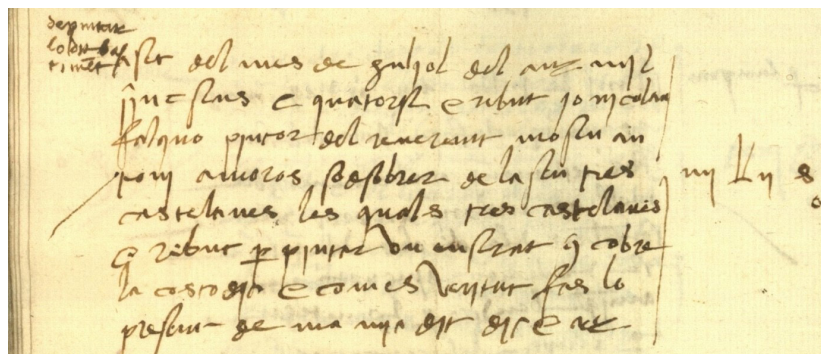 de pintar
lo dit bas
timent
a set del mes de guliol del any mil
sincsens e quatorse e ribut io nicolau
falquo pintor del reverent mosen an
toni amoros sosobrer de la seu tres
castelanes les quals tres castelanes
e ribut per pintar un enserat q cobre
la costodia e com es veritat fas lo
present de ma mia dit dia e any